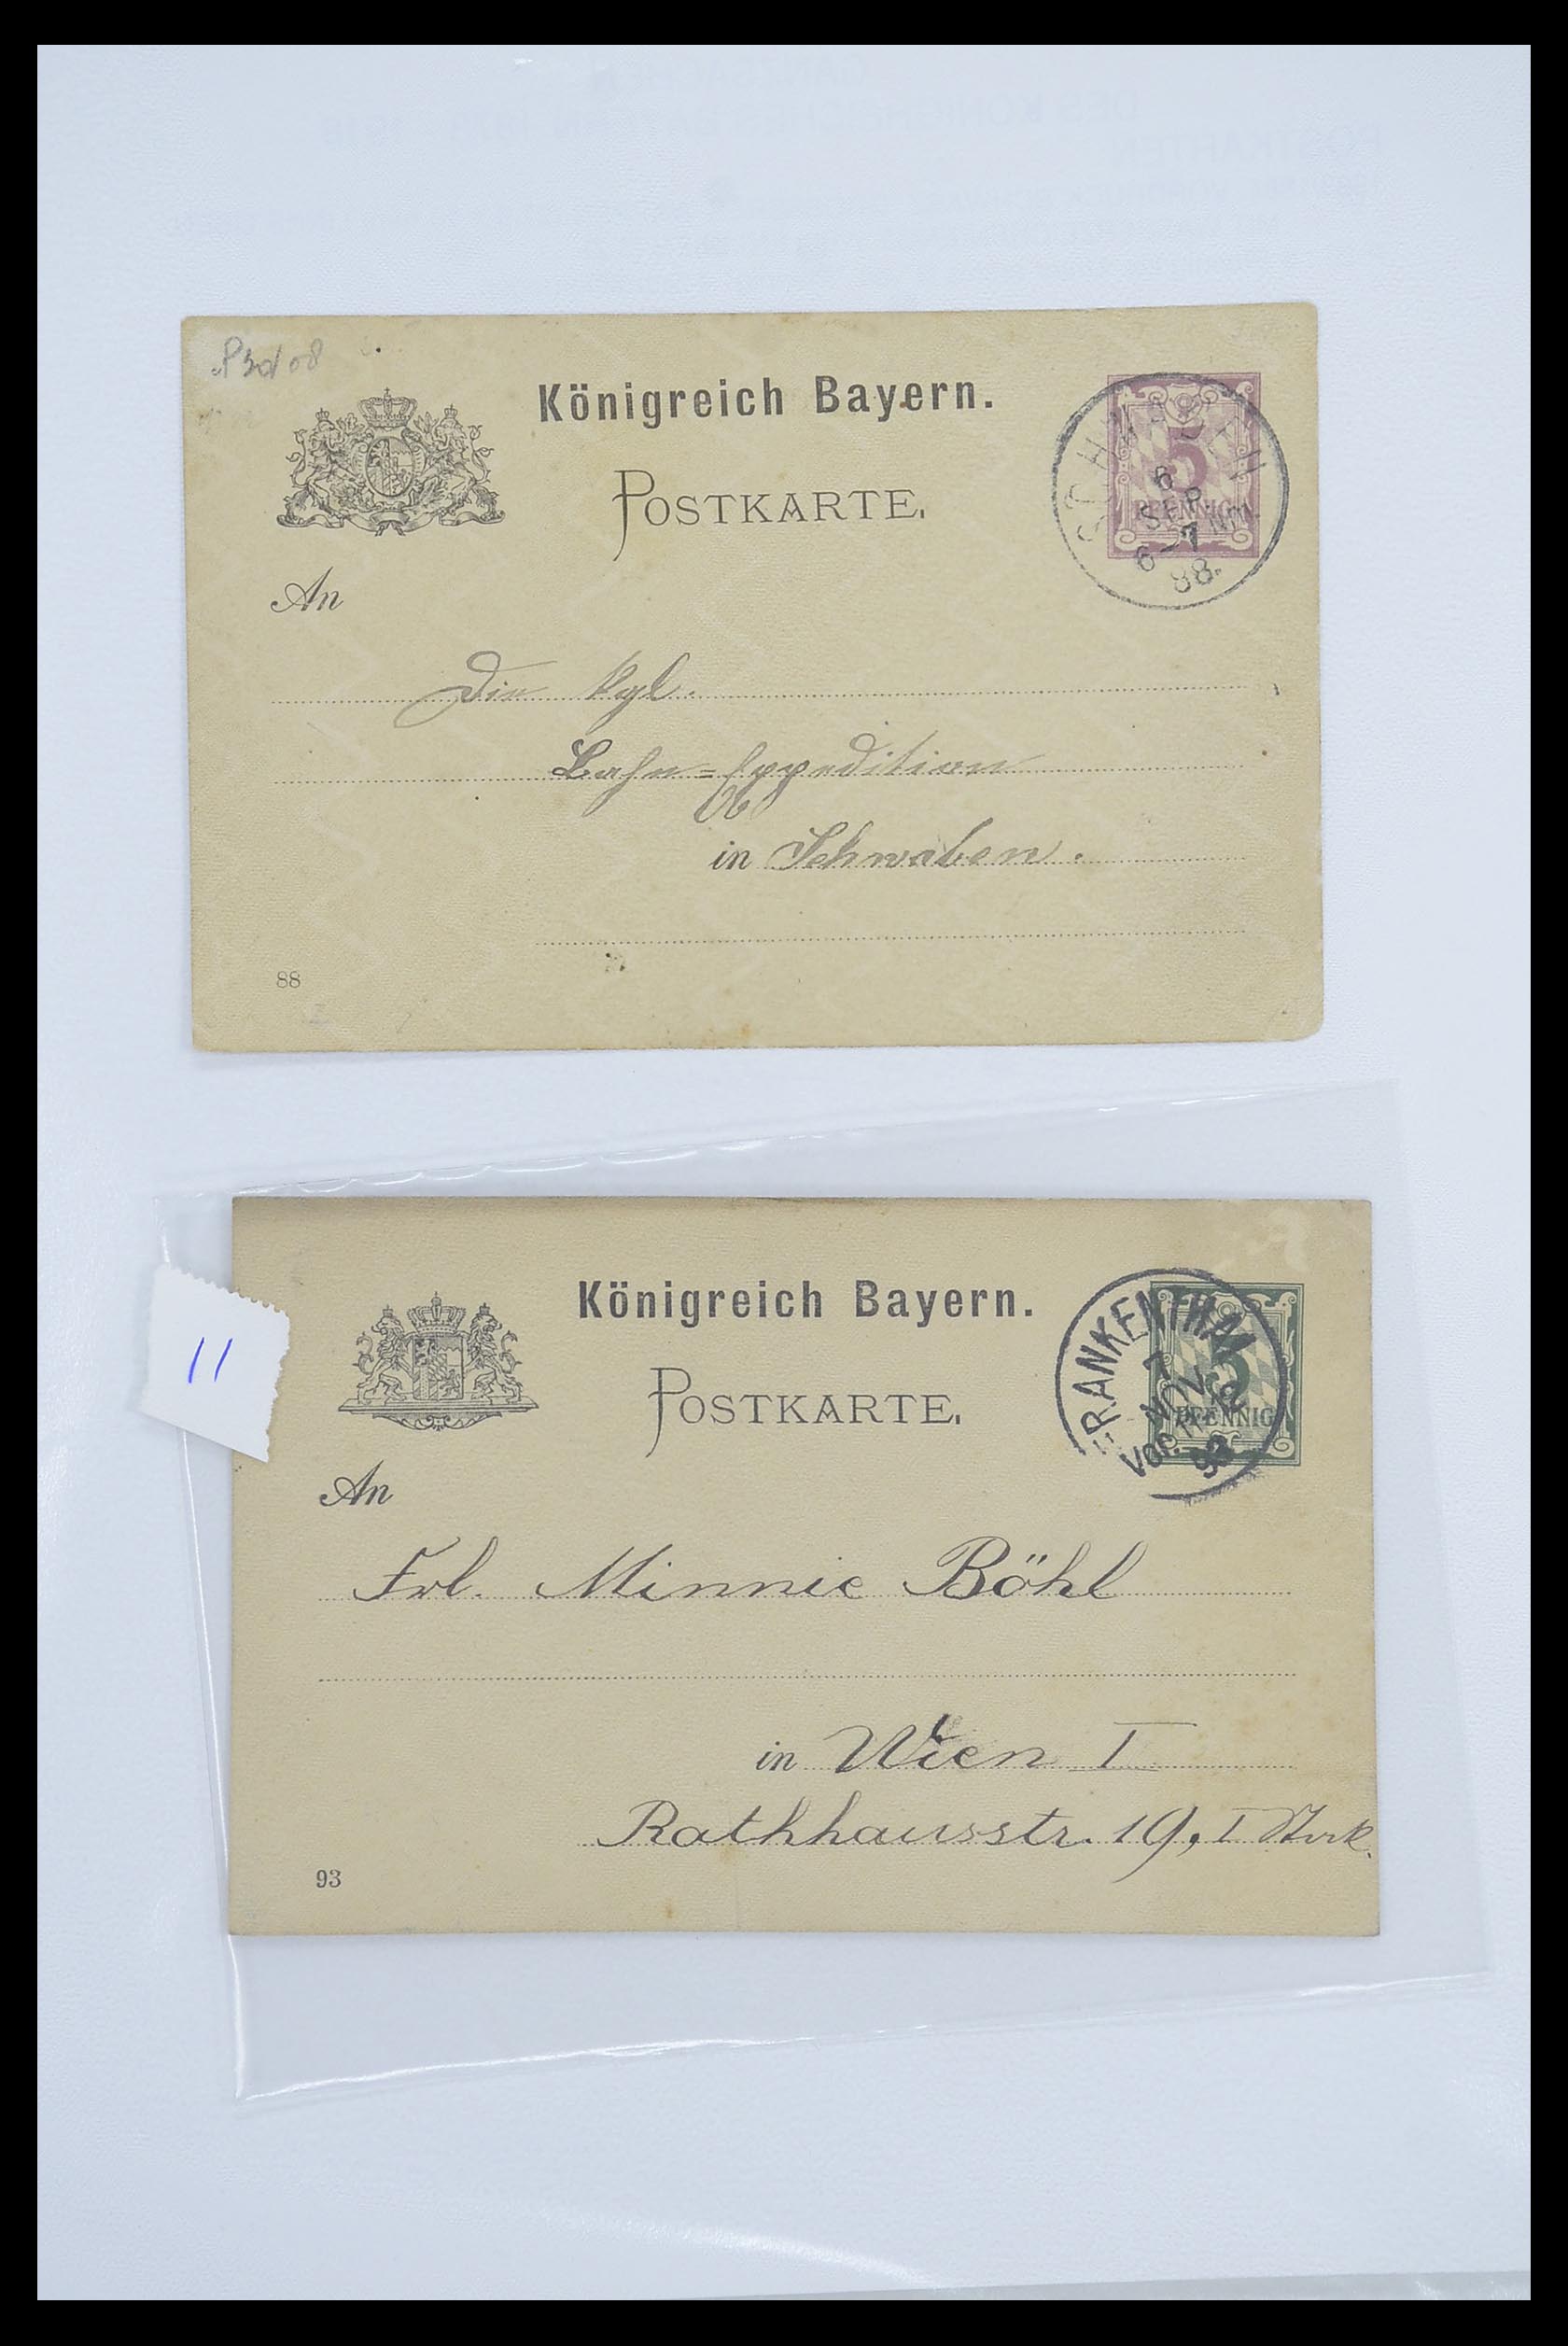 Königreich Bayern.
POSTKARTE.
5
PFENNIG
6
SEP.
6-7 NM
88.
An
Die Kgl.
Bahn=Expedition
in Schwaben.
88
11
Königreich Bayern.
POSTKARTE.
FRANKENTHAL
7
NOV.
Vor.
93
5
PFENNIG
An
Frl. Minnie Böhl
in Wien I
Rathhausstr. 19, I Stock.
93